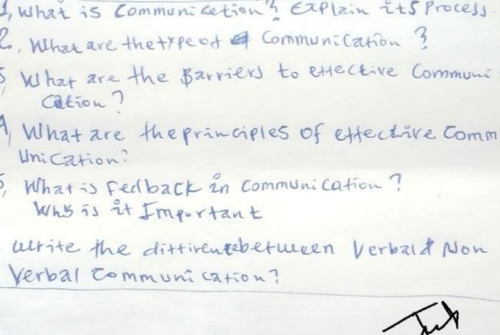 1, What is Communication? Explain its Process.
2, What are the type of Communication ?
3, What are the Barriers to effective Communi
cation ?
4, What are the principles of effective Comm
unication?
5, What is Fedback in Communication ?
Why is it Important
Write the diffirence between Verbal & Non
Verbal Communication ?